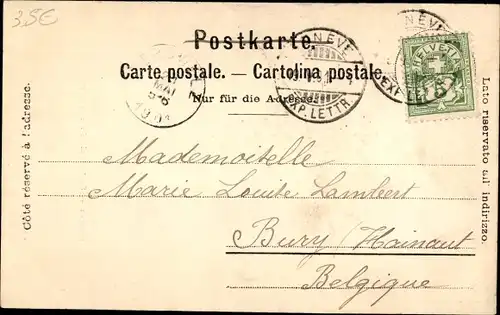 35€
Postkarte.
Carte postale. — Cartolina postale.
Nur für die Adresse.
HELVETIA
EXP. LETTR.
MAI
Côté réservé à l'adresse.
Lato riservato all' indirizzo.
Mademoiselle
Marie Louise Lambert
Bury / Hainaut
Belgique